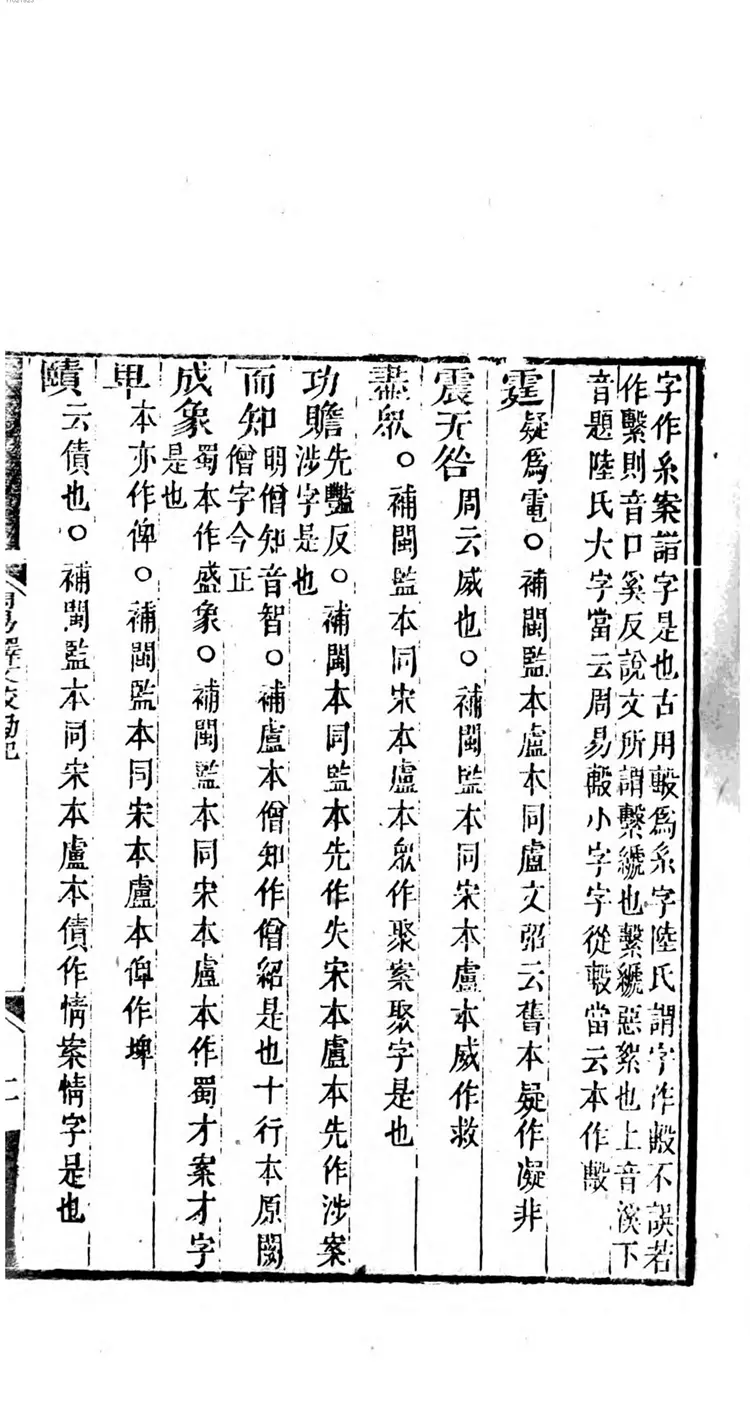 字作系案詣字是也古用毄爲系字陸氏謂字作毄不誤若
作繫則音口奚反說文所謂繫䙰也繫䙰惡絮也上音溪下
音題陸氏大字當云周易毄小字字從毄當云本作毄
霆疑爲電○補閩監本盧本同盧文弨云舊本疑作凝非
震无咎周云威也○補閩監本同宋本盧本威作救
盡眾○補閩監本同宋本盧本眾作聚案聚字是也
功贍先豔反○補閩本同監本先作失宋本盧本先作涉案
涉字是也
而知明僧知音智○補盧本僧知作僧紹是也十行本原闕
僧字今正
成象蜀本作盛象○補閩監本同宋本盧本作蜀才案才字
是也
卑本亦作俾○補閩監本同宋本盧本俾作埤
賾云債也○補閩監本同宋本盧本債作情案情字是也
周易釋文校勘記
二